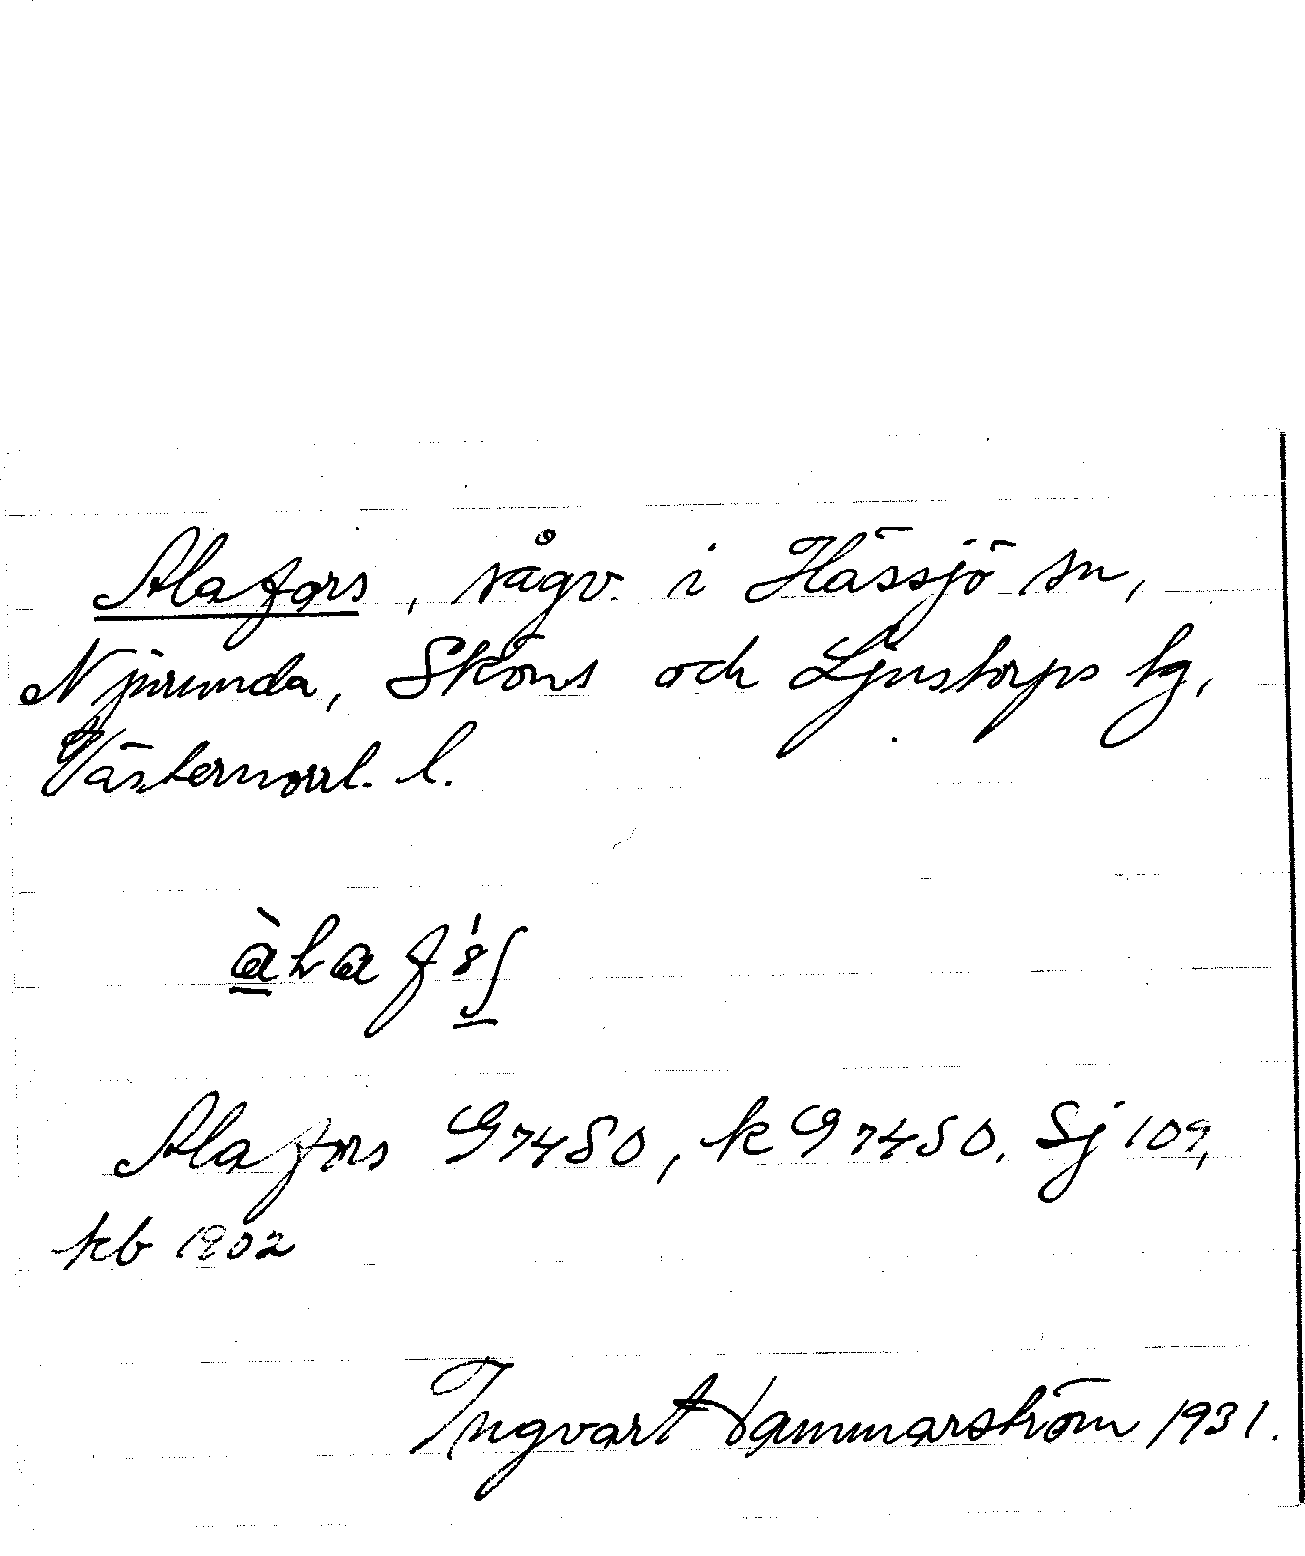 Alafors, sågv. i Hässjö sn,
Njurunda, Sköns och Ljustorps tg,
Västernorrl. l.
Alafors G7450, k G7450. Sj 109,
kb 1902
Ingvart Hammarström 1931.